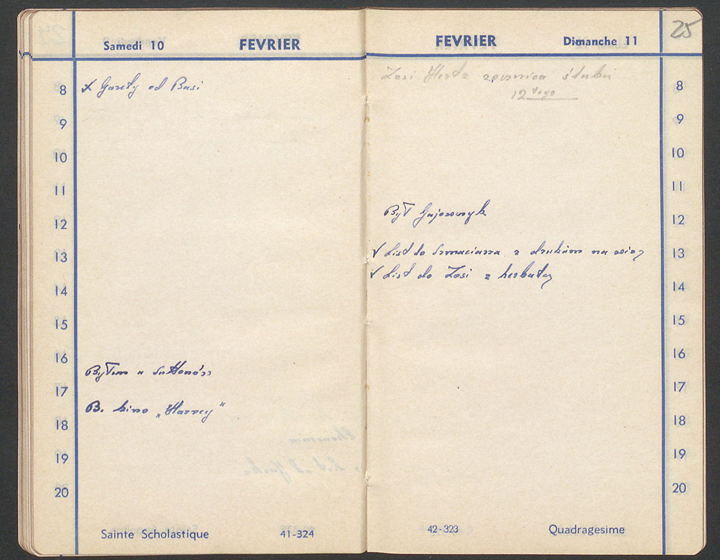 Samedi 10 FEVRIER
8
x Gazety od Basi
9
10
11
12
13
14
15
16
Byłem u Suttonów
17
B. kino „Harvey”
18
19
20
Sainte Scholastique 41-324
FEVRIER Dimanche 11 25
Zosi Hertz rocznica ślubu
12 tego
8
9
10
11
Był Gajewczyk
12
v List do Szmaciarza z drukiem na
13
v List do Zosi z herbatą
14
15
16
17
18
19
20
42-323 Quadragesime